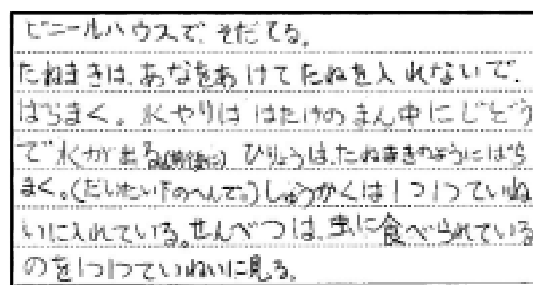 ビニールハウスで、そだてる。
たねまきは、あなをあけてたねを入れないで、
ばらまく。水やりは はたけのまん中にじどう
で水が出る ひりょうは、たねまきのようにばら
まく。(だいたい下のへんで。)しゅうかくは1つ1つていね
いに入れている。せんべつは、虫に食べられている
のを1つ1つていねいに見る。